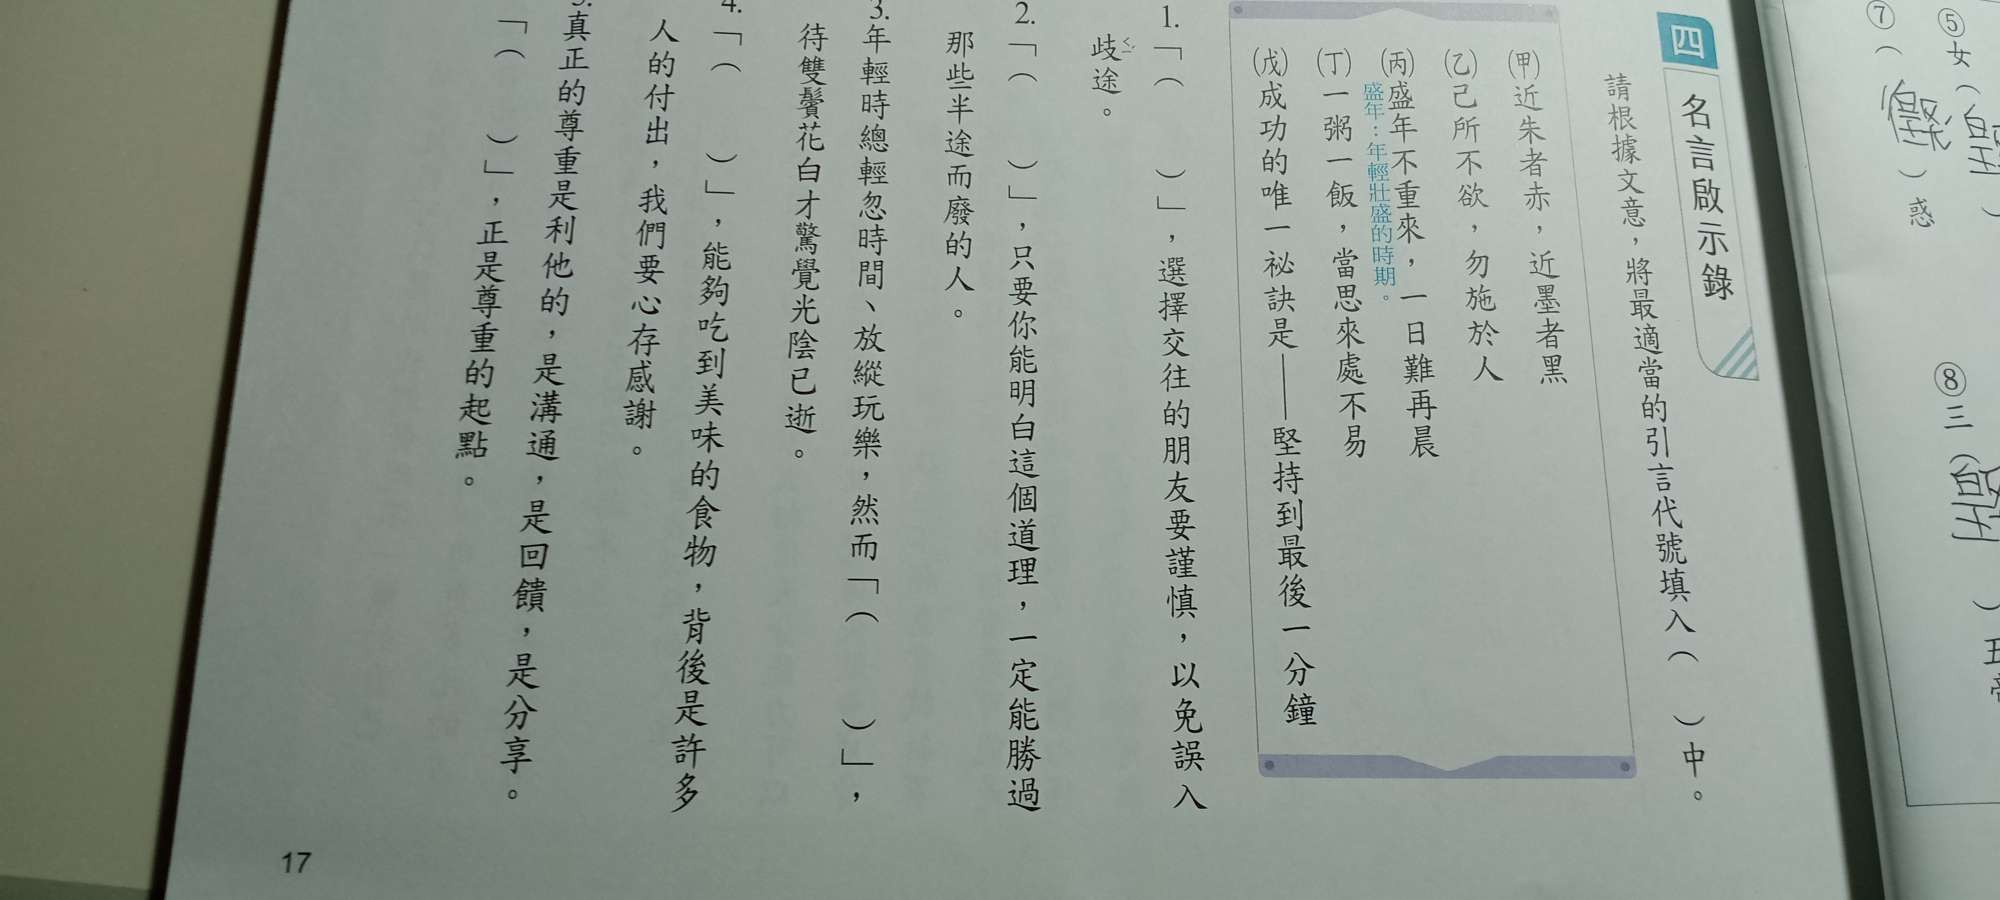 ⑤女(
)
⑦(
)惑
⑧三(
)五
四 名言啟示錄
請根據文意，將最適當的引言代號填入( )中。
(甲)近朱者赤，近墨者黑
(乙)己所不欲，勿施於人
(丙)盛年不重來，一日難再晨
盛年：年輕壯盛的時期。
(丁)一粥一飯，當思來處不易
(戊)成功的唯一祕訣是——堅持到最後一分鐘
1.「( )」，選擇交往的朋友要謹慎，以免誤入
歧途。
2.「( )」，只要你能明白這個道理，一定能勝過
那些半途而廢的人。
3.年輕時總輕忽時間、放縱玩樂，然而「( )」，
待雙鬢花白才驚覺光陰已逝。
4.「( )」，能夠吃到美味的食物，背後是許多
人的付出，我們要心存感謝。
5.真正的尊重是利他的，是溝通，是回饋，是分享。
「( )」，正是尊重的起點。
17